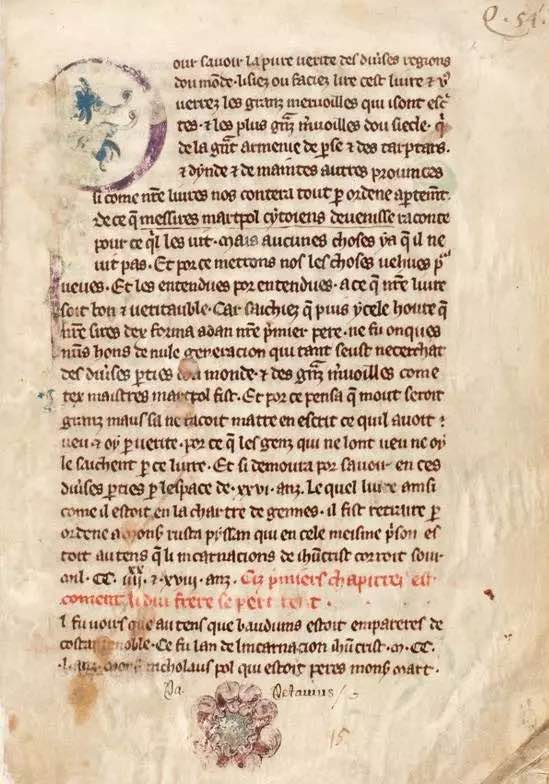 Q. 54.
our savoir la pure verite des diuses regions
dou mōde. lisiez ou faciez lire cest liure & v
verrez les granz meruoilles qui i sont esc̄
tes. & les plus gn̄z m̄uoilles dou siecle. q̄
de la gn̄t armenie de pse & des tarptars.
& dynde & de maintes autres prouinces
si come nr̄e liures nos contera tout p ordene aptemt.
de ce q̄ messires marcpol cytoiens de uenisse raconte
pour ce q̄l les uit. Mais aucunes choses ya q̄ il ne
uit pas. Et por ce mettons nos les choses uehues p
ueues. Et les entendues por entendues. a ce q̄ nr̄e liure
soit bon & ueritauble. Car saichiez q̄ puis ycele houre q̄
nr̄e sires dex forma adan nr̄e pmier pere. ne fu onques
nūs hons de nule generacion qui tant seust ne cerchat
des diūses pties dou monde. & des gn̄z m̄uoilles come
maistres marcpol fist. Et por ce pensa q̄ mout seroit
granz maus sil ne facoit mattre en escrit ce quil auoit
ueu & oy p uerite. por ce q̄ les genz qui ne lont ueu ne oy
le saichent p ce liure. Et si demoura por sauoir en ces
diūses pties p lespace de. xxvi. anz. Le quel liure ainsi
come il estoit en la chartre de gennes. il fist retraire p
ordene a monS rusta pysan qui en cele meisme pson es
toit au tens q̄ li incarnacions de ihūcrist corroit sour
mil. CC. iiij.xx & xviii. anz. Ci pmiers chapitres est
coment li dui frere se
l fu uoirs que au tens que bauduins estoit empareres de
costantinoble. Ce fu lan de lincarnacion ihūcrist. M. CC.
.l. anz. monS nicholaus pol qui estoit peres monS marc.
Pa. Petauius
15